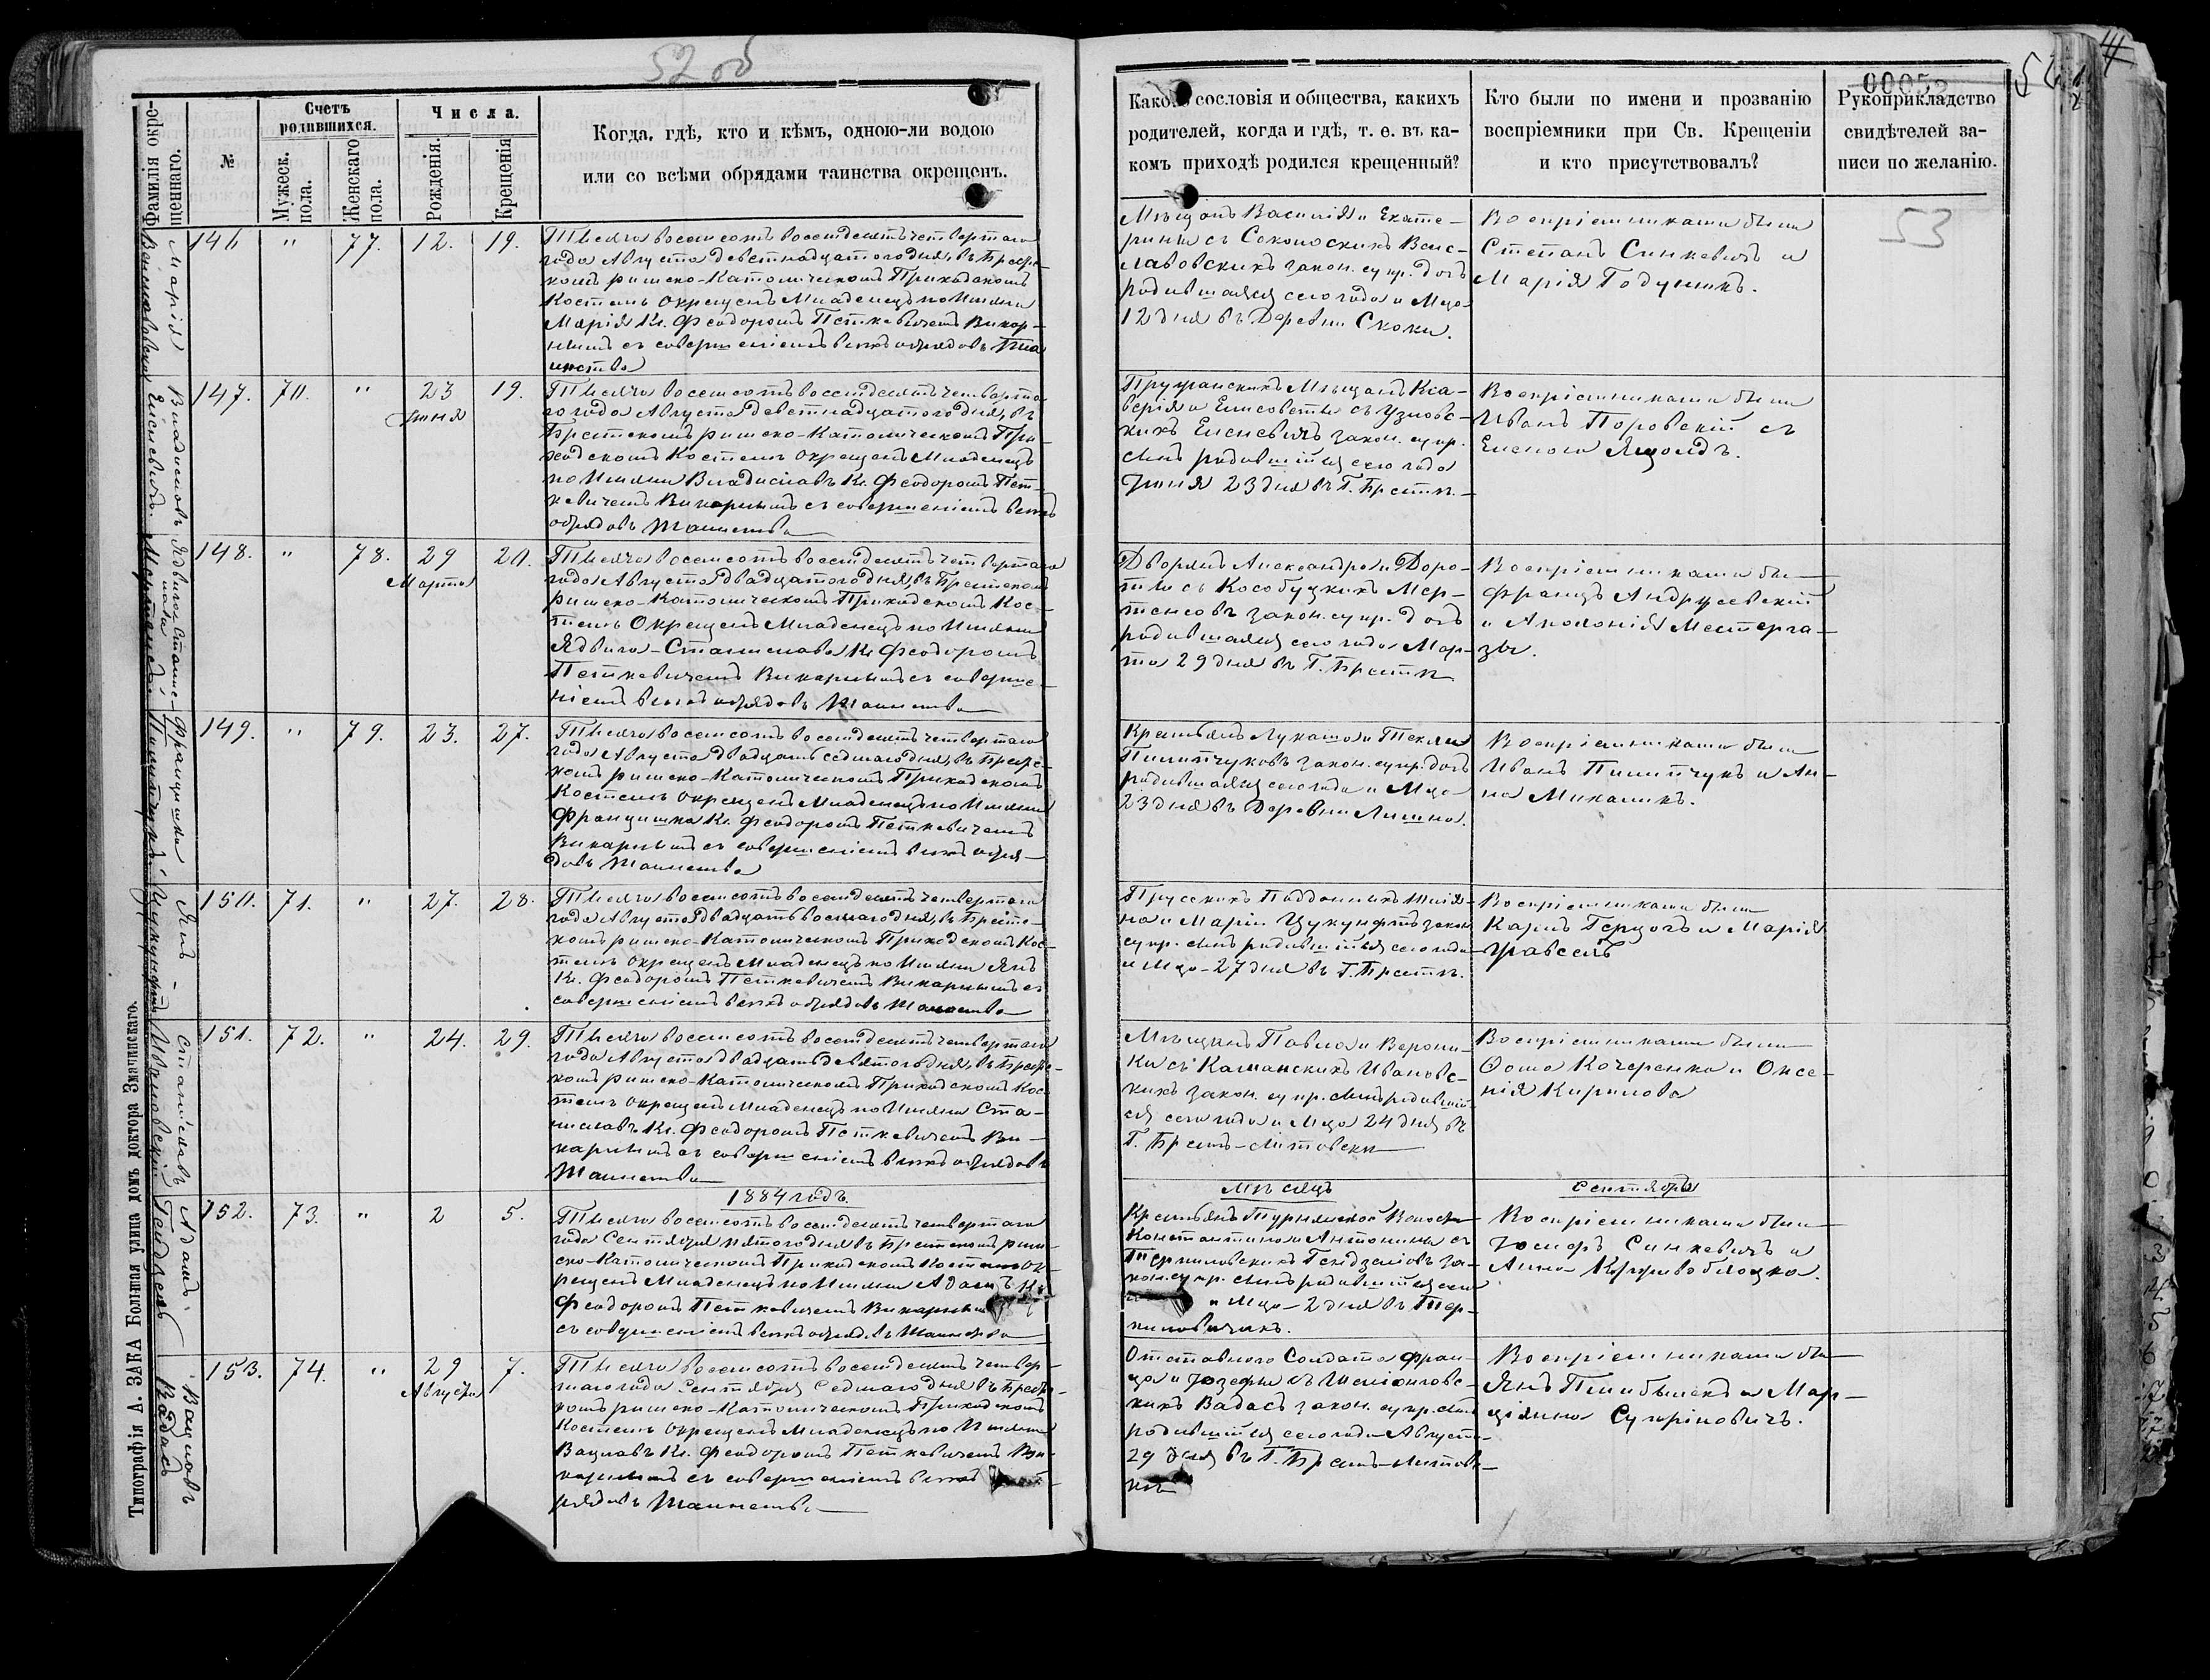 52 об
Фамилія окре-
щеннаго.
№
Счетъ
родившихся.
Мужеск.
пола.
Женскаго
пола.
Числа.
Рожденія.
Крещенія
Когда, гдѣ, кто и кѣмъ, одною-ли водою
или со всѣми обрядами таинства окрещенъ.
Марія
146
"
77.
12.
19.
Тысяча восемсотъ восемдесятъ четвертаго
года Августа девятнадцатого дня, въ Брест-
комъ римско-Католическомъ Приходскомъ
Костелѣ окрещенъ Младенецъ по Имени
Марія Кс. Феодоромъ Петкевичемъ Викар-
нымъ съ совершеніемъ всѣхъ обрядовъ Та-
инства
Владиславъ
Елсневичъ.
147.
70.
"
23
Іюня
19.
Тысяча восемсотъ восемдесятъ четверта-
го года Августа девятнадцатого дня, въ
Брестскомъ римско-Католическомъ При-
ходскомъ Костелѣ окрещенъ Младенецъ
по Имени Владиславъ Кс. Феодоромъ Пет-
кевичемъ Викарнымъ съ совершеніемъ всѣхъ
обрядовъ Таинства
Ядвига Стани-
слава
148.
"
78.
29
Марта
20.
Тысяча восемсотъ восемдесятъ четвертаго
года Августа двадцатого дня, въ Брестскомъ
римско-Католическомъ Приходскомъ Кос-
телѣ Окрещенъ Младенецъ по Имени
Ядвига-Станислава Кс. Феодоромъ
Петкевичемъ Викарнымъ съ соверше-
ніемъ всѣхъ обрядовъ Таинства
Францишка
Пилипчукъ
149.
"
79.
23.
27.
Тысяча восемсотъ восемдесятъ четвертаго
года Августа двадцать седмаго дня, въ Брест-
комъ римско-Католическомъ Приходскомъ
Костелѣ окрещенъ Младенецъ по Имени
Францишка Кс. Феодоромъ Петкевичемъ
Викарнымъ съ совершеніемъ всѣхъ обря-
довъ Таинства
Янъ
Цукунфтъ
150.
71.
"
27.
28.
Тысяча восемсотъ восемдесятъ четвертаго
года Августа двадцать восмаго дня, въ Брест-
комъ римско-Католическомъ Приходскомъ Кос-
телѣ окрещенъ Младенецъ по Имени Янъ
Кс. Феодоромъ Петкевичемъ Викарнымъ съ
совершеніемъ всѣхъ обрядовъ Таинства
Станиславъ
Ивановскій
151.
72.
"
24.
29.
Тысяча восемсотъ восемдесятъ четвертаго
года Августа двадцать девятого дня, въ Брест-
комъ римско-Католическомъ Приходскомъ Кос-
телѣ окрещенъ Младенецъ по Имени Ста-
ниславъ Кс. Феодоромъ Петкевичемъ Ви-
карнымъ съ совершеніемъ всѣхъ обрядовъ
Таинства
1884 годъ.
Адамъ
152.
73.
"
2
5.
Тысяча восемсотъ восемдесятъ четвертаго
года Сентября пятого дня въ Брестскомъ рим-
ско-Католическомъ Приходскомъ Костелѣ ок-
рещенъ Младенецъ по Имени Адамъ Кс.
Феодоромъ Петкевичемъ Викарнымъ
съ совершеніемъ всѣхъ обрядовъ Таинства
Вацлавъ
Вадасъ
153.
74.
"
29
Августа
7.
Тысяча восемсотъ восемдесятъ четвер-
таго года Сентября Седмаго дня въ Брест-
комъ римско-Католическомъ Приходскомъ
Костелѣ Окрещенъ Младенецъ по Имени
Вацлавъ Кс. Феодоромъ Петкевичемъ Ви-
карнымъ съ совершеніемъ всѣхъ
рядовъ Таинства
Типографія А. ЗАКА Большая улица домъ доктора Змачинскаго.
00052
Какого сословія и общества, какихъ
родителей, когда и гдѣ, т. е. въ ка-
комъ приходѣ родился крещенный?
Кто были по имени и прозванію
воспріемники при Св. Крещеніи
и кто присутствовалъ?
Рукоприкладство
свидѣтелей за-
писи по желанію.
53
Мѣщанъ Василія и Екате-
рины съ Соколоскихъ Веис-
лавовскихъ закон. супр. дочь
родившаяся сего года и Мца
12 дня въ Деревни Скоки.
Воспріемниками были
Степанъ Синкевичъ и
Марія Годуникъ.
Пружанскихъ Мѣщанъ Кса-
верія и Елисоветы съ Узловс-
кихъ Елсневичъ закон. супр.
сынъ родившійся сего года
Іюня 23 дня въ Г. Брестѣ.
Воспріемниками были
Иванъ Поровскій съ
Еленою Яцолдъ.
Дворянъ Александра и Доро-
ты съ Кособуцкихъ Мер-
тенсовъ закон. супр. дочь
родившаяся сего года Мар-
та 29 дня въ Г. Брестѣ
Воспріемниками бы-
Францъ Андрусевскій
и Аполонія Местерга-
зы.
Крестьянъ Лукаша и Текли
Пилипчуковъ закон. супр. дочь
родившаяся сего года и Мца
23 дня въ Деревни Лишна.
Воспріемниками были
Иванъ Пилипчукъ и Ан-
на Михаликъ.
Прусскихъ Подданныхъ Юлія-
на и Маріи Цукунфтъ закон
супр. сынъ родившійся сего года
и Мца-27 дня въ Г. Брестѣ.
Воспріемниками были
Карлъ Герцогъ и Марія
Гравсель
Мѣщанъ Павла и Верони-
ки съ Каманскихъ Ивановс-
кихъ закон. супр. сынъ родившій-
ся сего года и Мца 24 дня въ
Г. Брестъ-Литовски
Воспріемниками были
Ѳома Кочеренко и Оксе-
нія Кирилова
Мѣсяцъ
Сентябрь
Крестьянъ Турнянской Волости
Константина и Антонины съ
Терпиловскихъ Гендзеліовъ за-
кон. супр. сынъ родившійся сего
и Мца-2 дня въ Тер-
пиловичахъ.
Воспріемниками были
Іосифъ Синкевичъ и
Анна Кривоблоцка.
Отставного Солдата Фран-
ца и Іозефы съ Шеліонговс-
кихъ Вадасъ закон. супр. сынъ
родившійся сего года Августа
29 дня въ Г. Брестъ-Литовс-
кѣ
Воспріемниками бы-
Янъ Пшибылекъ и Мар-
ціянна Супріновичъ.